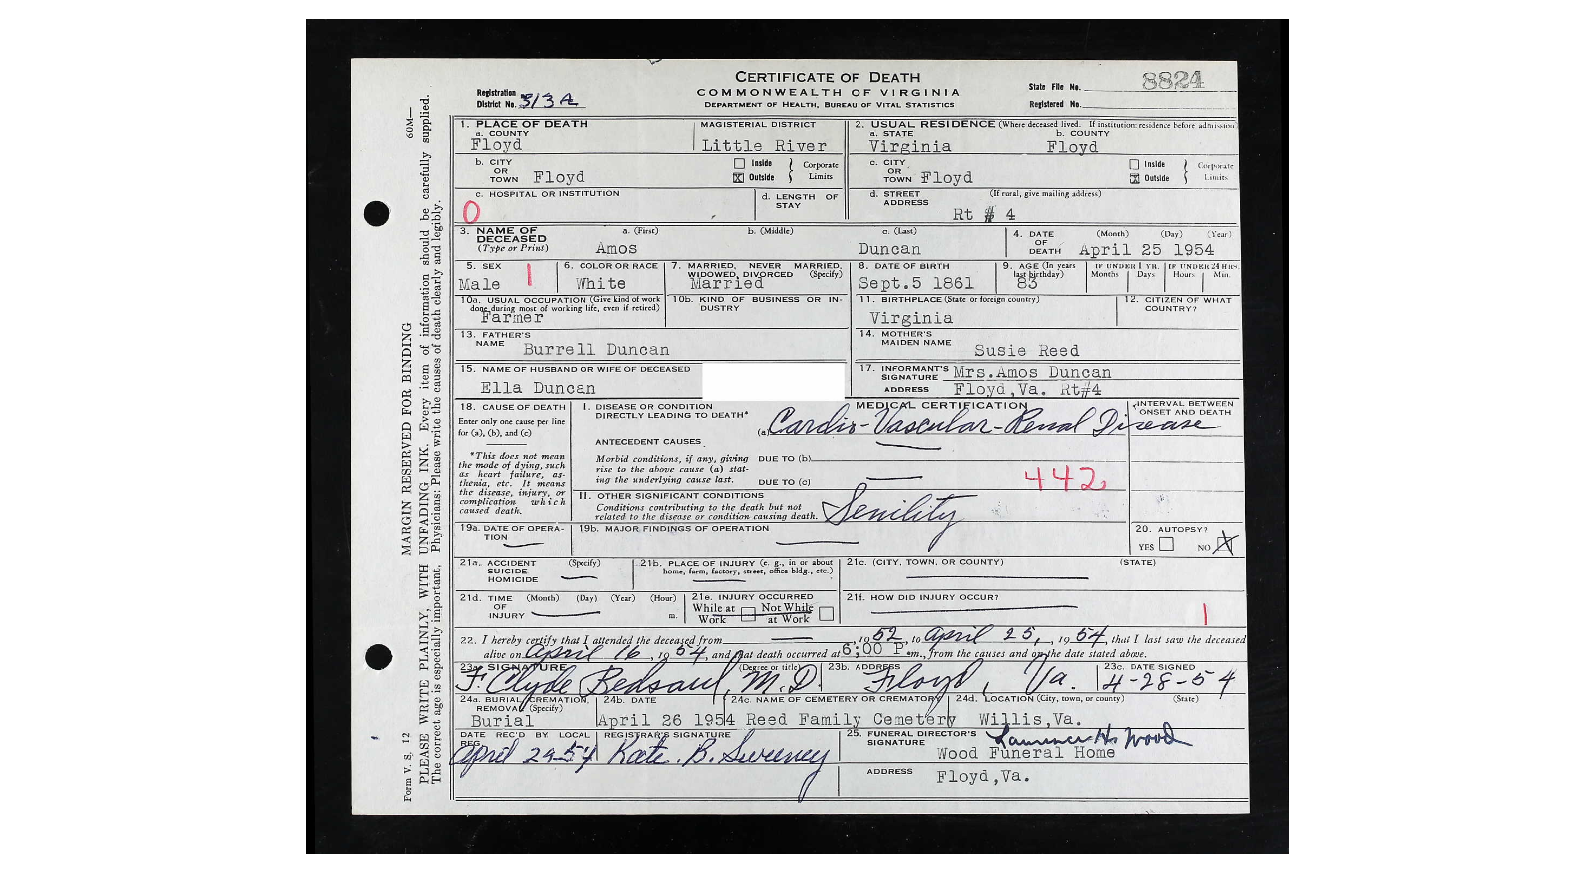 CERTIFICATE OF DEATH
COMMONWEALTH OF VIRGINIA
DEPARTMENT OF HEALTH, BUREAU OF VITAL STATISTICS
Registration District No. 313A
State File No. 8824
Registered No.
1. PLACE OF DEATH
a. COUNTY Floyd
MAGISTERIAL DISTRICT Little River
2. USUAL RESIDENCE (Where deceased lived. If institution: residence before admission)
a. STATE Virginia
b. COUNTY Floyd
b. CITY OR TOWN Floyd
Inside
Outside
Corporate Limits
c. CITY OR TOWN Floyd
Inside
Outside
Corporate Limits
c. HOSPITAL OR INSTITUTION
0
d. LENGTH OF STAY
d. STREET ADDRESS (If rural, give mailing address)
Rt # 4
3. NAME OF DECEASED (Type or Print)
a. (First) Amos
b. (Middle)
c. (Last) Duncan
4. DATE OF DEATH (Month) (Day) (Year)
April 25 1954
5. SEX Male 1
6. COLOR OR RACE White
7. MARRIED, NEVER MARRIED, WIDOWED, DIVORCED (Specify) Married
8. DATE OF BIRTH Sept.5 1861
9. AGE (In years last birthday) 83
IF UNDER 1 YR. Months Days
IF UNDER 24 HRS. Hours Min.
10a. USUAL OCCUPATION (Give kind of work done during most of working life, even if retired)
Farmer
10b. KIND OF BUSINESS OR INDUSTRY
11. BIRTHPLACE (State or foreign country)
Virginia
12. CITIZEN OF WHAT COUNTRY?
13. FATHER'S NAME Burrell Duncan
14. MOTHER'S MAIDEN NAME Susie Reed
15. NAME OF HUSBAND OR WIFE OF DECEASED
Ella Duncan
17. INFORMANT'S SIGNATURE Mrs.Amos Duncan
ADDRESS Floyd,Va. Rt#4
18. CAUSE OF DEATH
Enter only one cause per line for (a), (b), and (c)
*This does not mean the mode of dying, such as heart failure, asthenia, etc. It means the disease, injury, or complication which caused death.
MEDICAL CERTIFICATION
INTERVAL BETWEEN ONSET AND DEATH
I. DISEASE OR CONDITION DIRECTLY LEADING TO DEATH*
(a) Cardio-Vascular-Renal Disease
ANTECEDENT CAUSES
Morbid conditions, if any, giving rise to the above cause (a) stating the underlying cause last.
DUE TO (b)
DUE TO (c)
442
II. OTHER SIGNIFICANT CONDITIONS
Conditions contributing to the death but not related to the disease or condition causing death.
Senility
19a. DATE OF OPERATION
19b. MAJOR FINDINGS OF OPERATION
20. AUTOPSY?
YES NO X
21a. ACCIDENT SUICIDE HOMICIDE (Specify)
21b. PLACE OF INJURY (e. g., in or about home, farm, factory, street, office bldg., etc.)
21c. (CITY, TOWN, OR COUNTY) (STATE)
21d. TIME OF INJURY (Month) (Day) (Year) (Hour) m.
21e. INJURY OCCURRED
While at Work
Not While at Work
21f. HOW DID INJURY OCCUR?
1
22. I hereby certify that I attended the deceased from 1952, to April 25, 1954, that I last saw the deceased
alive on April 16, 1954, and that death occurred at 6:00 P.m., from the causes and on the date stated above.
23a. SIGNATURE (Degree or title)
F. Clyde Bedsaul, M.D.
23b. ADDRESS Floyd, Va.
23c. DATE SIGNED 4-28-54
24a. BURIAL, CREMATION, REMOVAL (Specify)
Burial
24b. DATE
April 26 1954
24c. NAME OF CEMETERY OR CREMATORY
Reed Family Cemetery
24d. LOCATION (City, town, or county) (State)
Willis,Va.
DATE REC'D BY LOCAL REG.
April 29-54
REGISTRAR'S SIGNATURE
Kate. B. Sweeney
25. FUNERAL DIRECTOR'S SIGNATURE Laurence H. Wood
Wood Funeral Home
ADDRESS Floyd,Va.
Form V. S. 12
60M—
MARGIN RESERVED FOR BINDING
PLEASE WRITE PLAINLY, WITH UNFADING INK. Every item of information should be carefully supplied.
The correct age is especially important. Physicians: Please write the causes of death clearly and legibly.